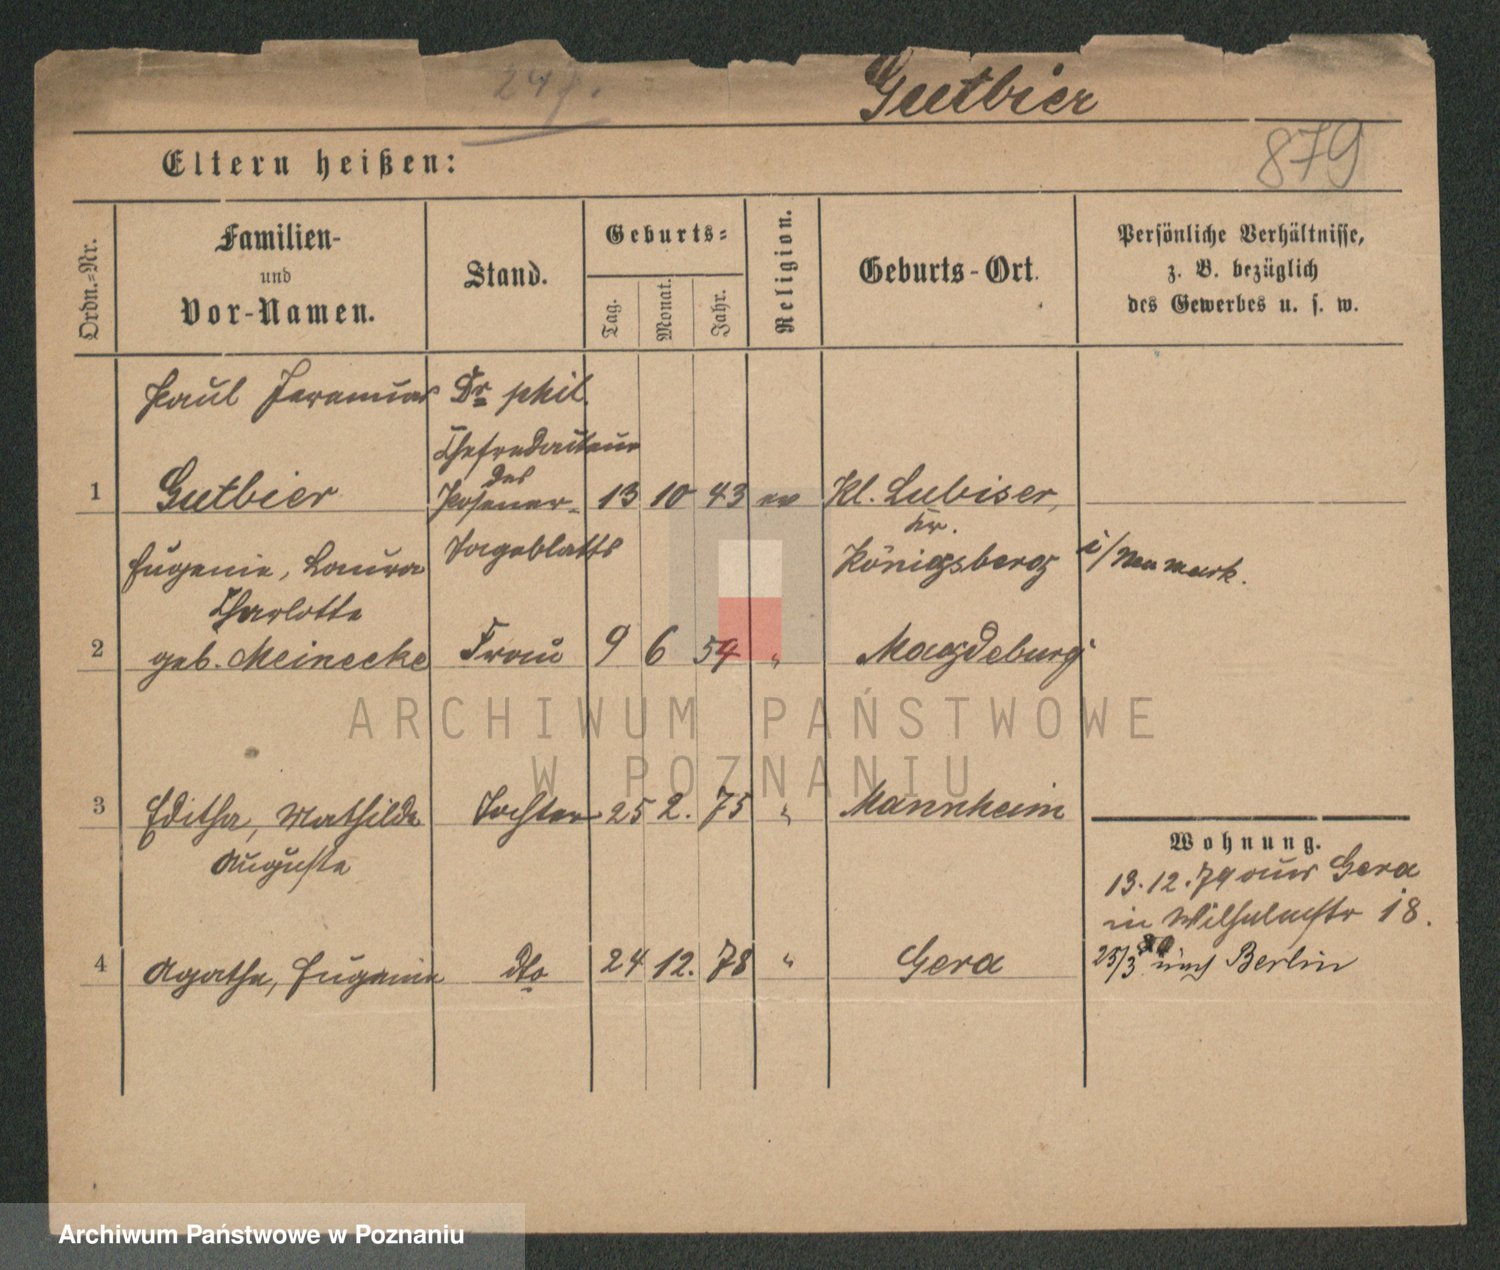 Gutbier
879
Eltern heißen:
Ordn.-Nr.
Familien-
und
Vor-Namen.
Stand.
Geburts-
Tag.
Monat.
Jahr.
Religion.
Geburts-Ort.
Persönliche Verhältnisse,
z. B. bezüglich
des Gewerbes u. s. w.
Paul Dr phil.
Chefredacteur
des
1 Gutbier Posener- 13 10 43 ev Kl. Lubiser,
Kr.
Eugenie, Laura Tageblatts Königsberg i/Neumark.
Charlotte
2 geb. Meinecke Frau 9 6 54 " Magdeburg
3 Editha, Mathilde Tochter 25 2. 75 " Mannheim
Auguste
Wohnung.
13.12.79 aus Gera
in Wilhelmstr 18.
4 Agathe, Eugenie dto 24 12. 78 " Gera
25/3 80 nach Berlin
ARCHIWUM PAŃSTWOWE
W POZNANIU
Archiwum Państwowe w Poznaniu